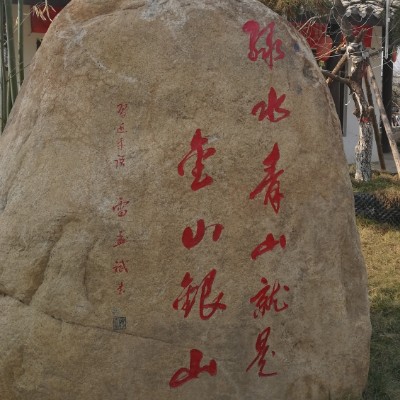 绿水青山就是
金山銀山
习近平语